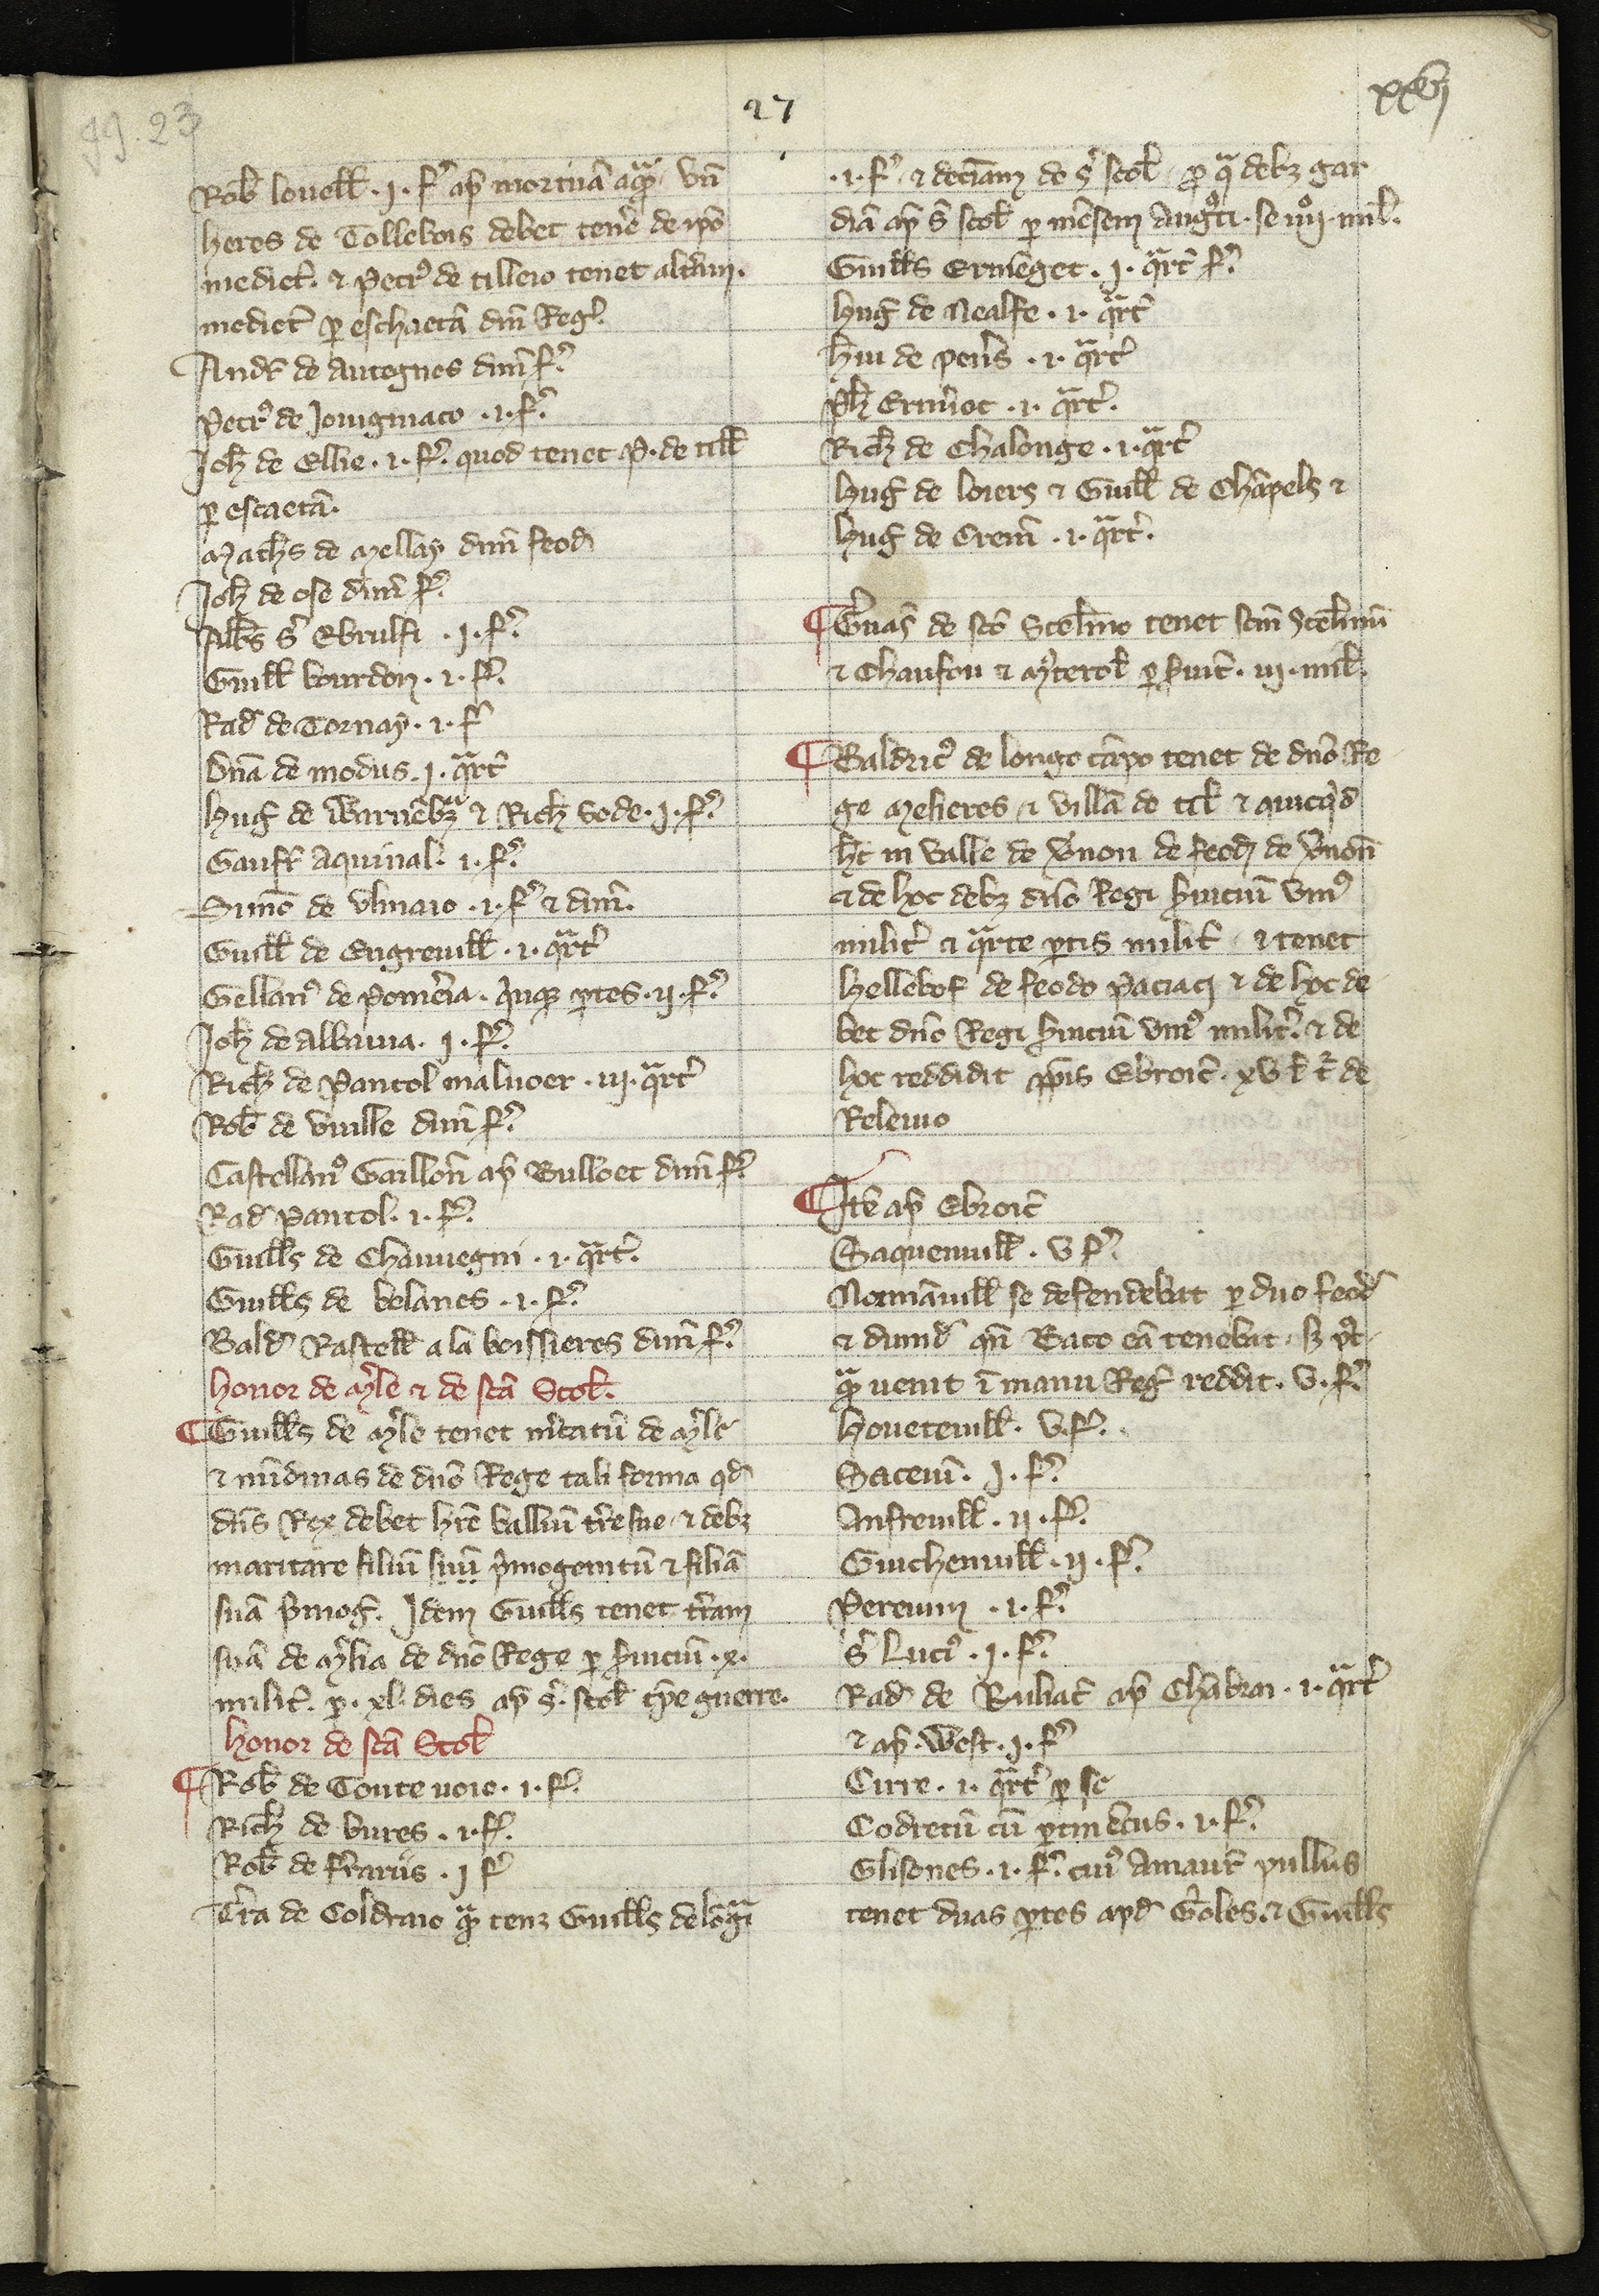 JJ. 23
27
xxvij
Rob̃ louell̃ . I . f̃. ap̃ mortuã aquã . vñ
heres de Tollebois debet ten̾e de ip̃o
mediet̃. & Petrꝰ de tilleio tenet alt̾am.
mediet̃ ꝑ eschaetã dñi Reg̃.
Andr̃ de Autognes dim̃ f̃.
Petrꝰ de Jouigniaco . I . f̃.
Joh̃ de Ellie . I . f̃. quod tenet P. de till̃
ꝑ escaetã.
Math̃s de Mellay dim̃ feod̃
Joh̃ de ose dim̃ f̃.
Abb̃s S̃ Ebrulfi . I . f̃.
Guill̃ bourdon . I . f̃.
Rad̃ de Tornay . I . f̃
Dña de modus . I . quart̃
hug̃ de Warnẽbꝫ & Rich̃ sode . I . f̃.
Gaufr̃ Aquinal . I . f̃.
Simõ de vlmaio . I . f̃. & dim̃.
Guill̃ de Engreuill̃ . I . quart̃
Gellanꝰ de Pomẽia . q̾nqꝫ ꝑtes . II . f̃.
Joh̃ de Albauia . I . f̃.
Rich̃ de Pantol maluoer . III . quart̃
Rob̃ de vuille dim̃ f̃.
Castellanꝰ Gaillon̾ ap̃ Bulloet dim̃ f̃.
Rad̃ Pantol . I . f̃.
Guill̃s de Chauuegni . I . quart̃.
Guill̃s de belanes . I . f̃.
Bald̃ Rastell̃ a la boissieres dim̃ f̃.
honor de M̾le & de sc̃a Scol̃.
¶ Guill̃s de M̾le tenet m̾catũ de M̾le
& nũdinas de dño Rege tali forma qd̃
dñs Rex debet hr̃e balliuũ t̾re sue & debꝫ
maritare filiũ suũ p̾mogenitũ & filiã
suã p̾mog̃. Idem Guill̃s tenet t̾ram
suã de M̾lia de dño Rege ꝑ s̾uiciũ . x.
milit̃. ꝑ . xl. dies ap̃ S̃. scol̃ tp̃e guerre.
honor de sc̃a Scol̃
¶ Rob̃ de Toute uoie . I . f̃.
Rich̃ de bures . I . f̃.
Rob̃ de f̾rariis . I f̃
T̾ra de Coldraio quã tenꝫ Guill̃s de lõga
. I . f̃. & deciam de S̃ scol̃ . ꝓ qua debꝫ gar
diã ap̃ S̃ scol̃ ꝑ mẽsem Augusti . se iiijº . mil̃.
Guill̃s Ermẽget . I . quart̃ f̃.
hug̃ de Nealfe . I . quart̃
h̃ui de pen̾s . I . quart̃
Ph̃ Ermẽoc . I . quart̃.
Rich̃ de Chalonge . I . quart̃
hug̃ de loiers & Guill̃ de Chãpels &
hug̃ de Crem̃ . I . quart̃.
¶ G̾uas̃ de sc̃o Scel̃ino tenet sc̃m Scel̃inũ
& Chaufou & M̾terol̃ ꝑ s̾uic̃ . iij . mil̃.
¶ Baldricꝰ de longo cãpo tenet de dño Re
ge Mesieres & villã de til̃ & quicq̾d
ht̃ in valle de V̾non de feod̃ de V̾non̾
& de hoc debꝫ dño Regi s̾uiciũ vniꝰ
milit̃ & quarte ꝑtis milit̃ . & tenet
hellebof de feodo Paciaci & de hoc de
bet dño Regi s̾uiciũ vniꝰ milit̃. & de
hoc reddidit ap̃is Ebroic̃ . xv l̃ t̃ de
Releuio
¶ Itẽ ap̃ Ebroic̃
Saquenuill̃ . v f̃.
Normãuill̃ se defendebat ꝑ duo feod̃
& dimid̃ qñ Bato eã tenebat . sꝫ pt̾
quã uenit ĩ manu Reg̃ reddit . v . f̃.
Houeteuill̃ . v. f̃.
Saceuĩ . I . f̃.
Anfreuill̃ . II . f̃.
Guichenuill̃ . II . f̃.
Pereium . I . f̃.
S̃ Lucꝰ . I . f̃.
Rad̃ de Ruliac̃ ap̃ Chãbrai . I . quart̃
& ap̃ West . I . f̃.
Cirre . I . quart̃ ꝑ se
Codretũ cũ ꝑtinẽciis . I . f̃.
Glisones . I . f̃. cuiꝰ Amaur̃ pullus
tenet duas ꝑtes apd̃ G̾oles. & Guill̃s